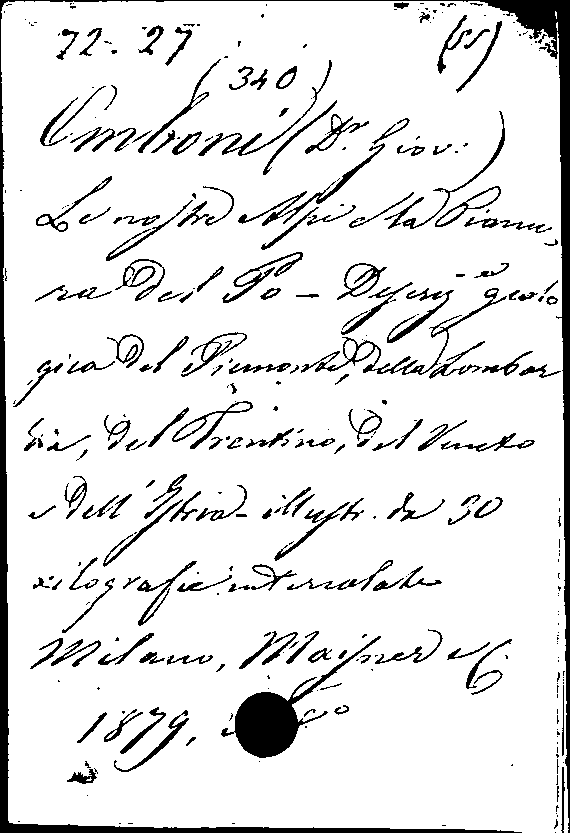 72. 27 (55)
(340)
Omboni (Dr. Giov:)
Le nostre Alpi e la Pianu,
ra del Po - Descriz.e geolo
gica del Piemonte, della Lombar
dia, del Trentino, del Veneto
e dell'Istria - illustr. da 30
xilografie intercalate
Milano, Maisner e C.
1879,